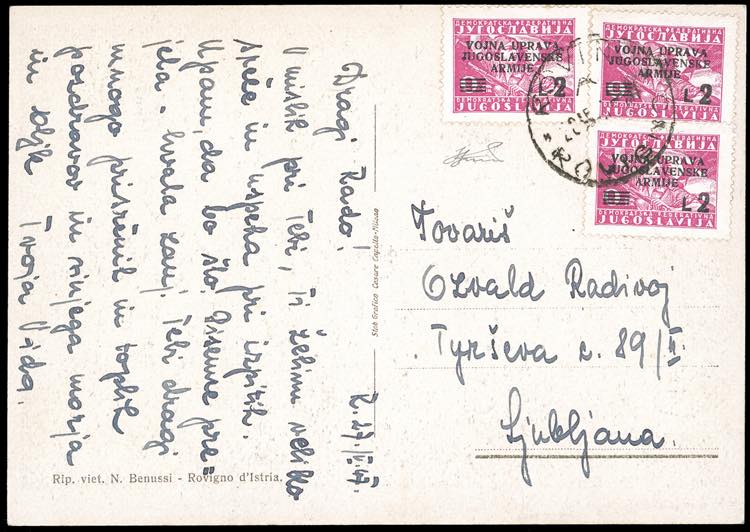 DEMOKRATSKA FEDERATIVNA
JUGOSLAVIJA
VOJNA UPRAVA
JUGOSLAVENSKE
ARMIJE
L 2
DEMOKRATSKA FEDERATIVNA
JUGOSLAVIJA
ДЕМОКРАТСКА ФЕДЕРАТИВНА
ЈУГОСЛАВИЈА
VOJNA UPRAVA
JUGOSLAVENSKE
ARMIJE
L 2
ДЕМОКРАТСКА ФЕДЕРАТИВНА
ЈУГОСЛАВИЈА
DEMOKRATSKA FEDERATIVNA
JUGOSLAVIJA
VOJNA UPRAVA
JUGOSLAVENSKE
ARMIJE
L 2
DEMOKRATSKA FEDERATIVNA
JUGOSLAVIJA
ROVIGNO
R. 27./V.47.
Dragi Rado!
V mislih pri Tebi, Ti želim veliko
sreče in uspeha pri izpitih.
Upam, da bo šlo. Pisemce pre-
jela - hvala zanj. Tebi dragi
mnogo prisrčnih in toplih
pozdravov in sinjega morja
in
Tvoja Vida.
Stab Grafico Cesare Capello-Milano
Rip. viet. N. Benussi - Rovigno d'Istria.
Tovariš
Ozvald Radivoj
Tyrševa c. 89/II.
Ljubljana.